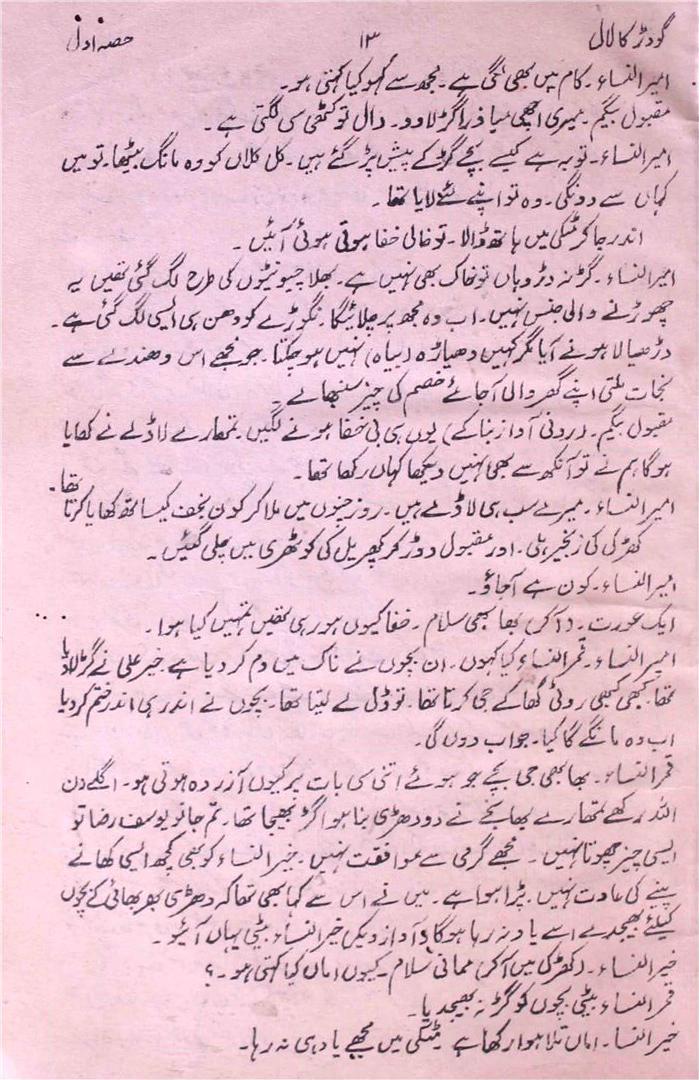 گودڑ کا لال ۱۳ حصہ اول
امیرالنساء۔ کام میں بھی لگی ہے۔ مجھ سے کہو کیا کہتی ہو۔
مقبول بیگم۔ میری اچھی میا ذرا گڑ لا دو۔ دال تو کٹھی سی لگتی ہے۔
امیرالنساء۔ توبہ ہے کیسے بچے گڑ کے پیش پڑ گئے ہیں۔ کل کلاں کو وہ مانگ بیٹھا۔ تو میں
کہاں سے دونگی۔ وہ تو اپنے لئے لایا تھا۔
اندر جا کر مٹکی میں ہاتھ ڈالا۔ تو خالی خفا ہوتی ہوئی آئیں۔
امیرالنساء۔ گڑ نہ دڑ وہاں تو خاک بھی نہیں ہے۔ بھلا چیونٹیوں کی طرح لگ گئی تھیں یہ
چھوڑنے والی جنس نہیں۔ اب وہ مجھ پر چلائیگا نگوڑے کو دھن ہی ایسی لگ گئی ہے۔
دڑھیالا ہونے آیا مگر کہیں دھیاڑہ (بیاہ) نہیں ہو چکتا۔ جو مجھے اس دھندے سے
نجات ملتی اپنے گھر والی آجائے خصم کی چیز سنبھالے۔
مقبول بیگم۔ (رونی آواز بنا کے) یوں ہی بی خفا ہونے لگیں۔ تمہارے لاڈلے نے کھایا
ہوگا ہم نے تو آنکھ سے بھی نہیں دیکھا کہاں رکھا تھا۔
امیرالنساء۔ میرے سب ہی لاڈلے ہیں۔ روز چنوں میں ملا کر کون نجف کیساتھ کھایا کرتا تھا۔
کھڑکی کی زنجیر ہلی۔ اور مقبول دوڑ کر کھپریل کی کوٹھری میں چلی گئیں۔
امیرالنساء۔ کون ہے آجاؤ۔
ایک عورت۔ (آ کر) بھابھی سلام۔ خفا کیوں ہو رہی تھیں تمہیں کیا ہوا۔
امیرالنساء۔ قمرالنساء کیا کہوں۔ ان بچوں نے ناک میں دم کر دیا ہے خیر علی نے گڑ لا دیا
تھا۔ کبھی کبھی روٹی کھا کے جی کرتا تھا۔ تو ڈل لے لیتا تھا۔ بچوں نے اندر ہی اندر ختم کر دیا
اب وہ مانگے گا کیا۔ جواب دوں گی۔
قمرالنساء۔ بھابھی جی بچے جو ہوئے اتنی سی بات پر کیوں آزردہ ہوتی ہو۔ اگلے دن
اللہ رکھے تمہارے بھانجے نے دو دھڑی بنا ہوا گڑ بھیجا تھا۔ تم جانو یوسف رضا تو
ایسی چیز چھوتا نہیں۔ مجھے گرمی سے موافقت نہیں۔ خیرالنساء کو بھی کچھ ایسی کھانے
پینے کی عادت نہیں۔ پڑا ہوا ہے۔ میں نے اس سے کہا بھی تھا کہ دھڑی بھر بھائی کے بچوں
کیلئے بھیجدے اسے یاد نہ رہا ہوگا (آواز دیکر) خیرالنساء بیٹی یہاں آئیو۔
خیرالنساء۔ (کھڑکی میں آکر) ممانی سلام۔ کیوں اماں کیا کہتی ہو۔؟
قمرالنساء بیٹی بچوں کو گڑ نہ بھیجدیا۔
خیرالنسا۔ اماں تلا ہوا رکھا ہے مٹکی میں مجھے یاد ہی نہ رہا۔